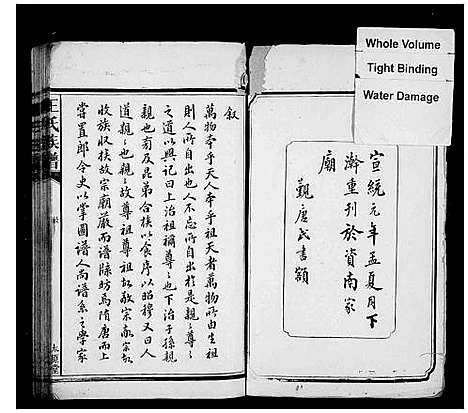 Whole Volume
Tight Binding
Water Damage
宣統元年孟夏月下
澣重刊於資南家
廟
觀唐氏書額
敘
萬物本乎天人本乎祖天者萬物所由生祖
則人所自出也人不忘所自出於是親親尊尊
之道以興記曰上治祖禰尊尊也下治子孫親
親也旁及昆弟合族以食序以昭穆又曰人
道親親也親親故尊祖尊祖故敬宗敬宗故
收族收族故宗廟嚴而譜牒昉焉隋唐而上
嘗置郎令史以掌圖譜人尚譜系之學家
王氏族譜